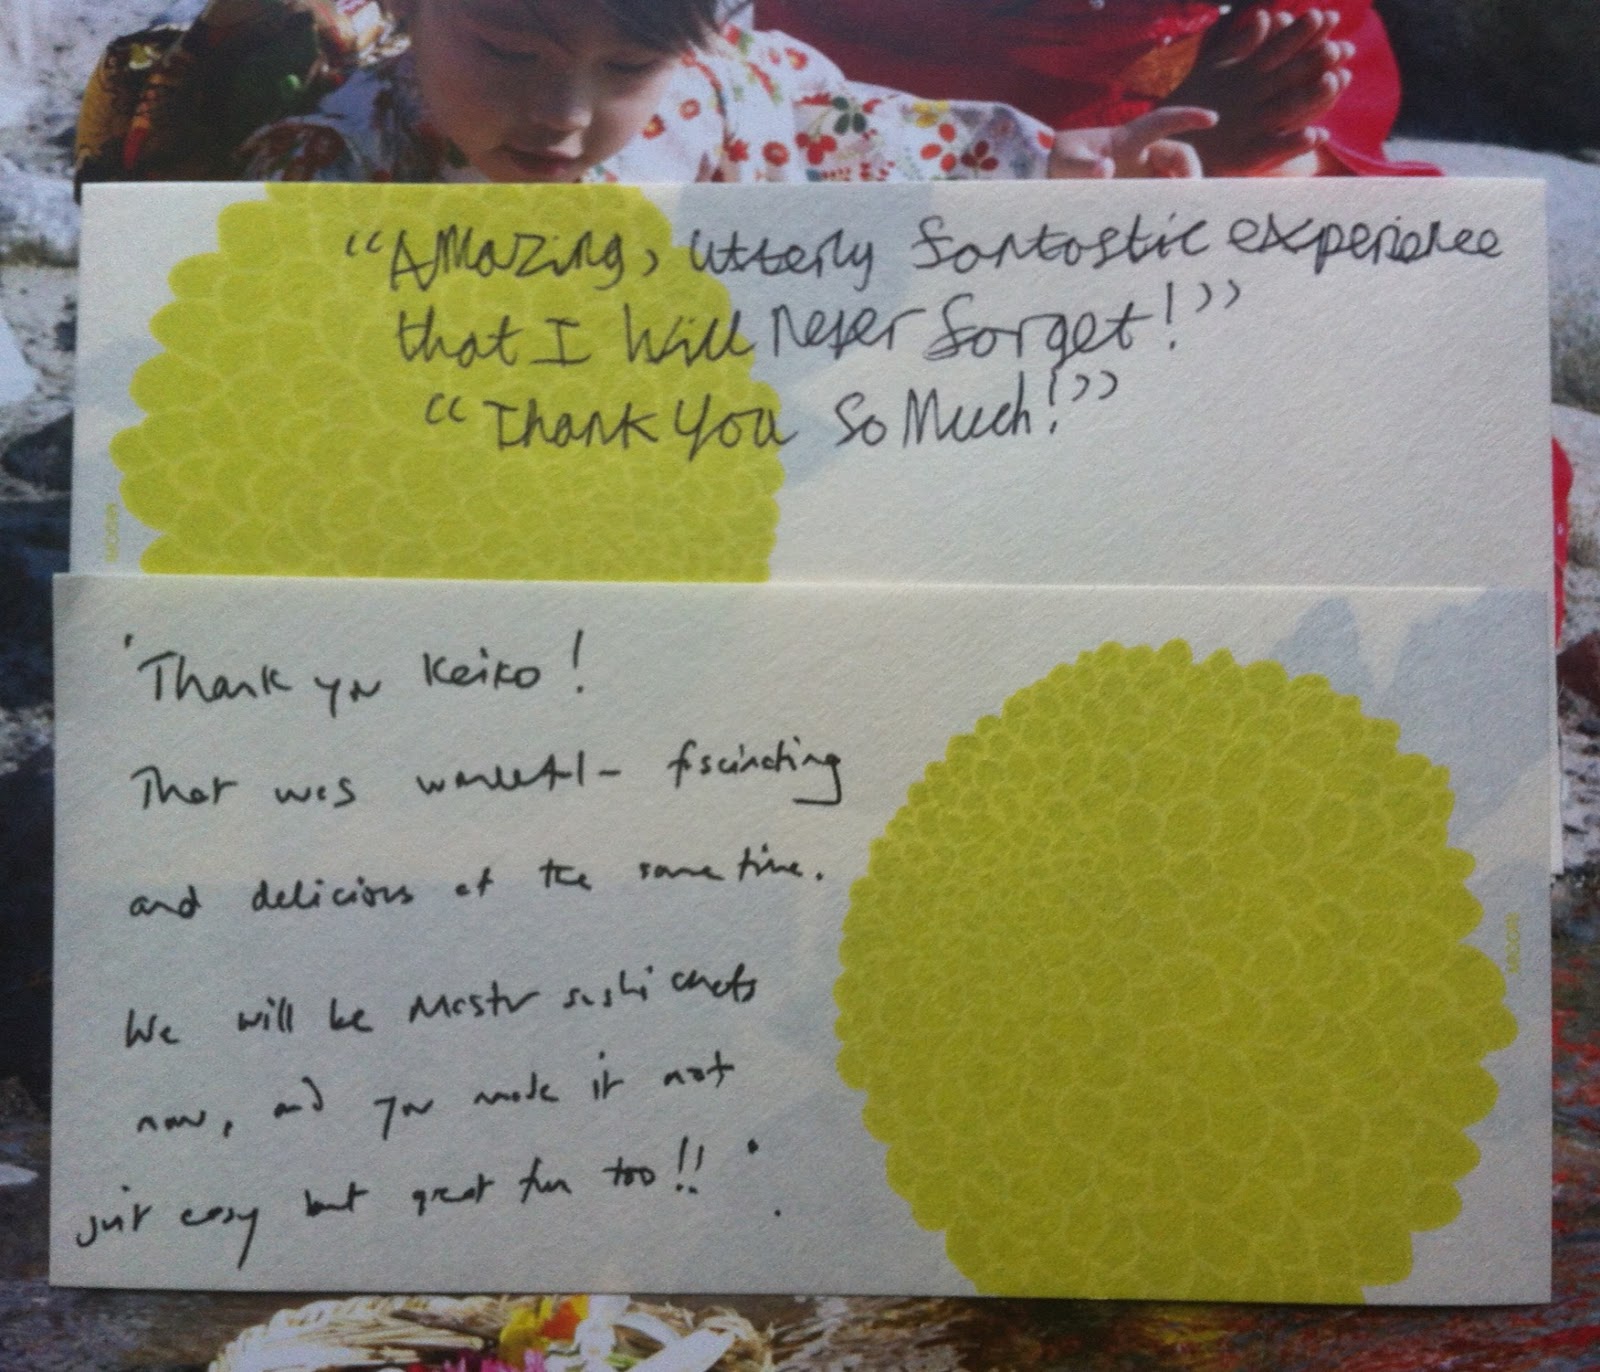 “Amazing, utterly fantastic experience
that I will never forget!”
“Thank you so much!”
'Thank you Keiko!
That was wonderful - fascinating
and delicious at the same time.
We will be master sushi chefs
now, and you made it not
just easy but great fun too!!'